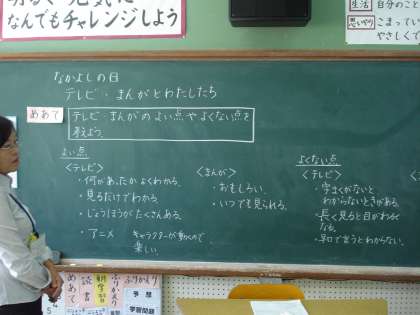 なんでもチャレンジしよう
生活
自分のこと
思いやり
こまってい
やさしくで
なかよしの日
テレビ・まんがとわたしたち
めあて
テレビ・まんがのよい点やよくない点を
考えよう。
よい点
<テレビ>
・何があったかよくわかる。
・見るだけでわかる。
・じょうほうがたくさんある。
・アニメ キャラクターが動くので
楽しい。
<まんが>
・おもしろい。
・いつでも見られる。
よくない点
<テレビ>
・字まくがないと
わからないときがある。
・長く見ると目がわるく
なる。
・早口で言うとわからない。
めあて
読書
ふりかえり
予想
学習問題